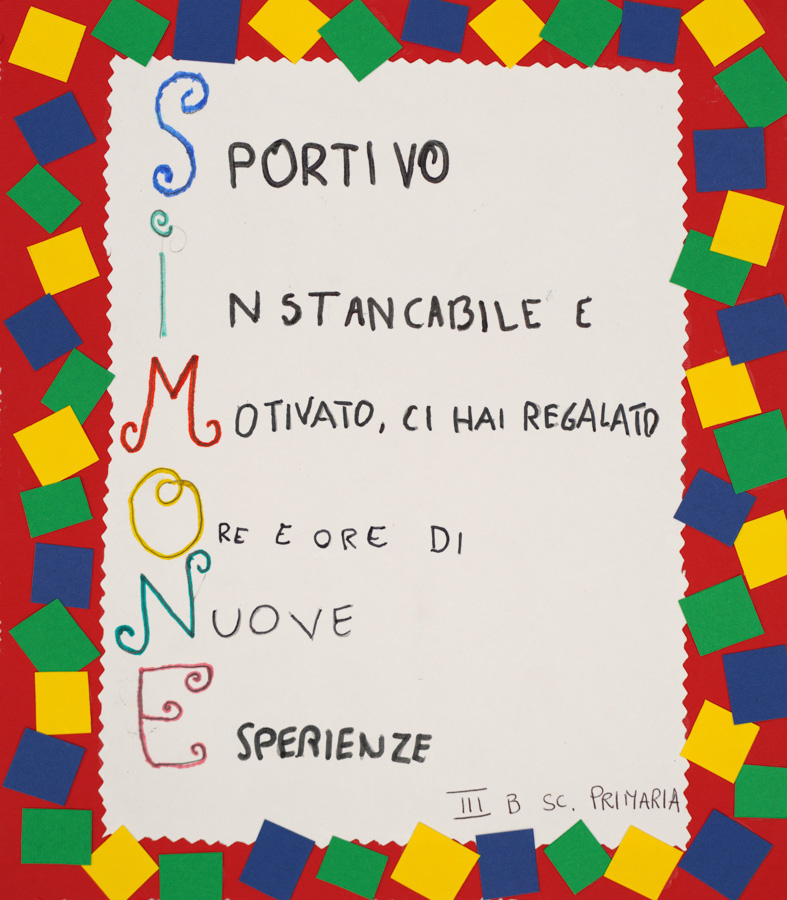 SPORTIVO
iNSTANCABILE E
MOTIVATO, CI HAI REGALATO
ORE E ORE DI
NUOVE
ESPERIENZE
III B SC. PRIMARIA